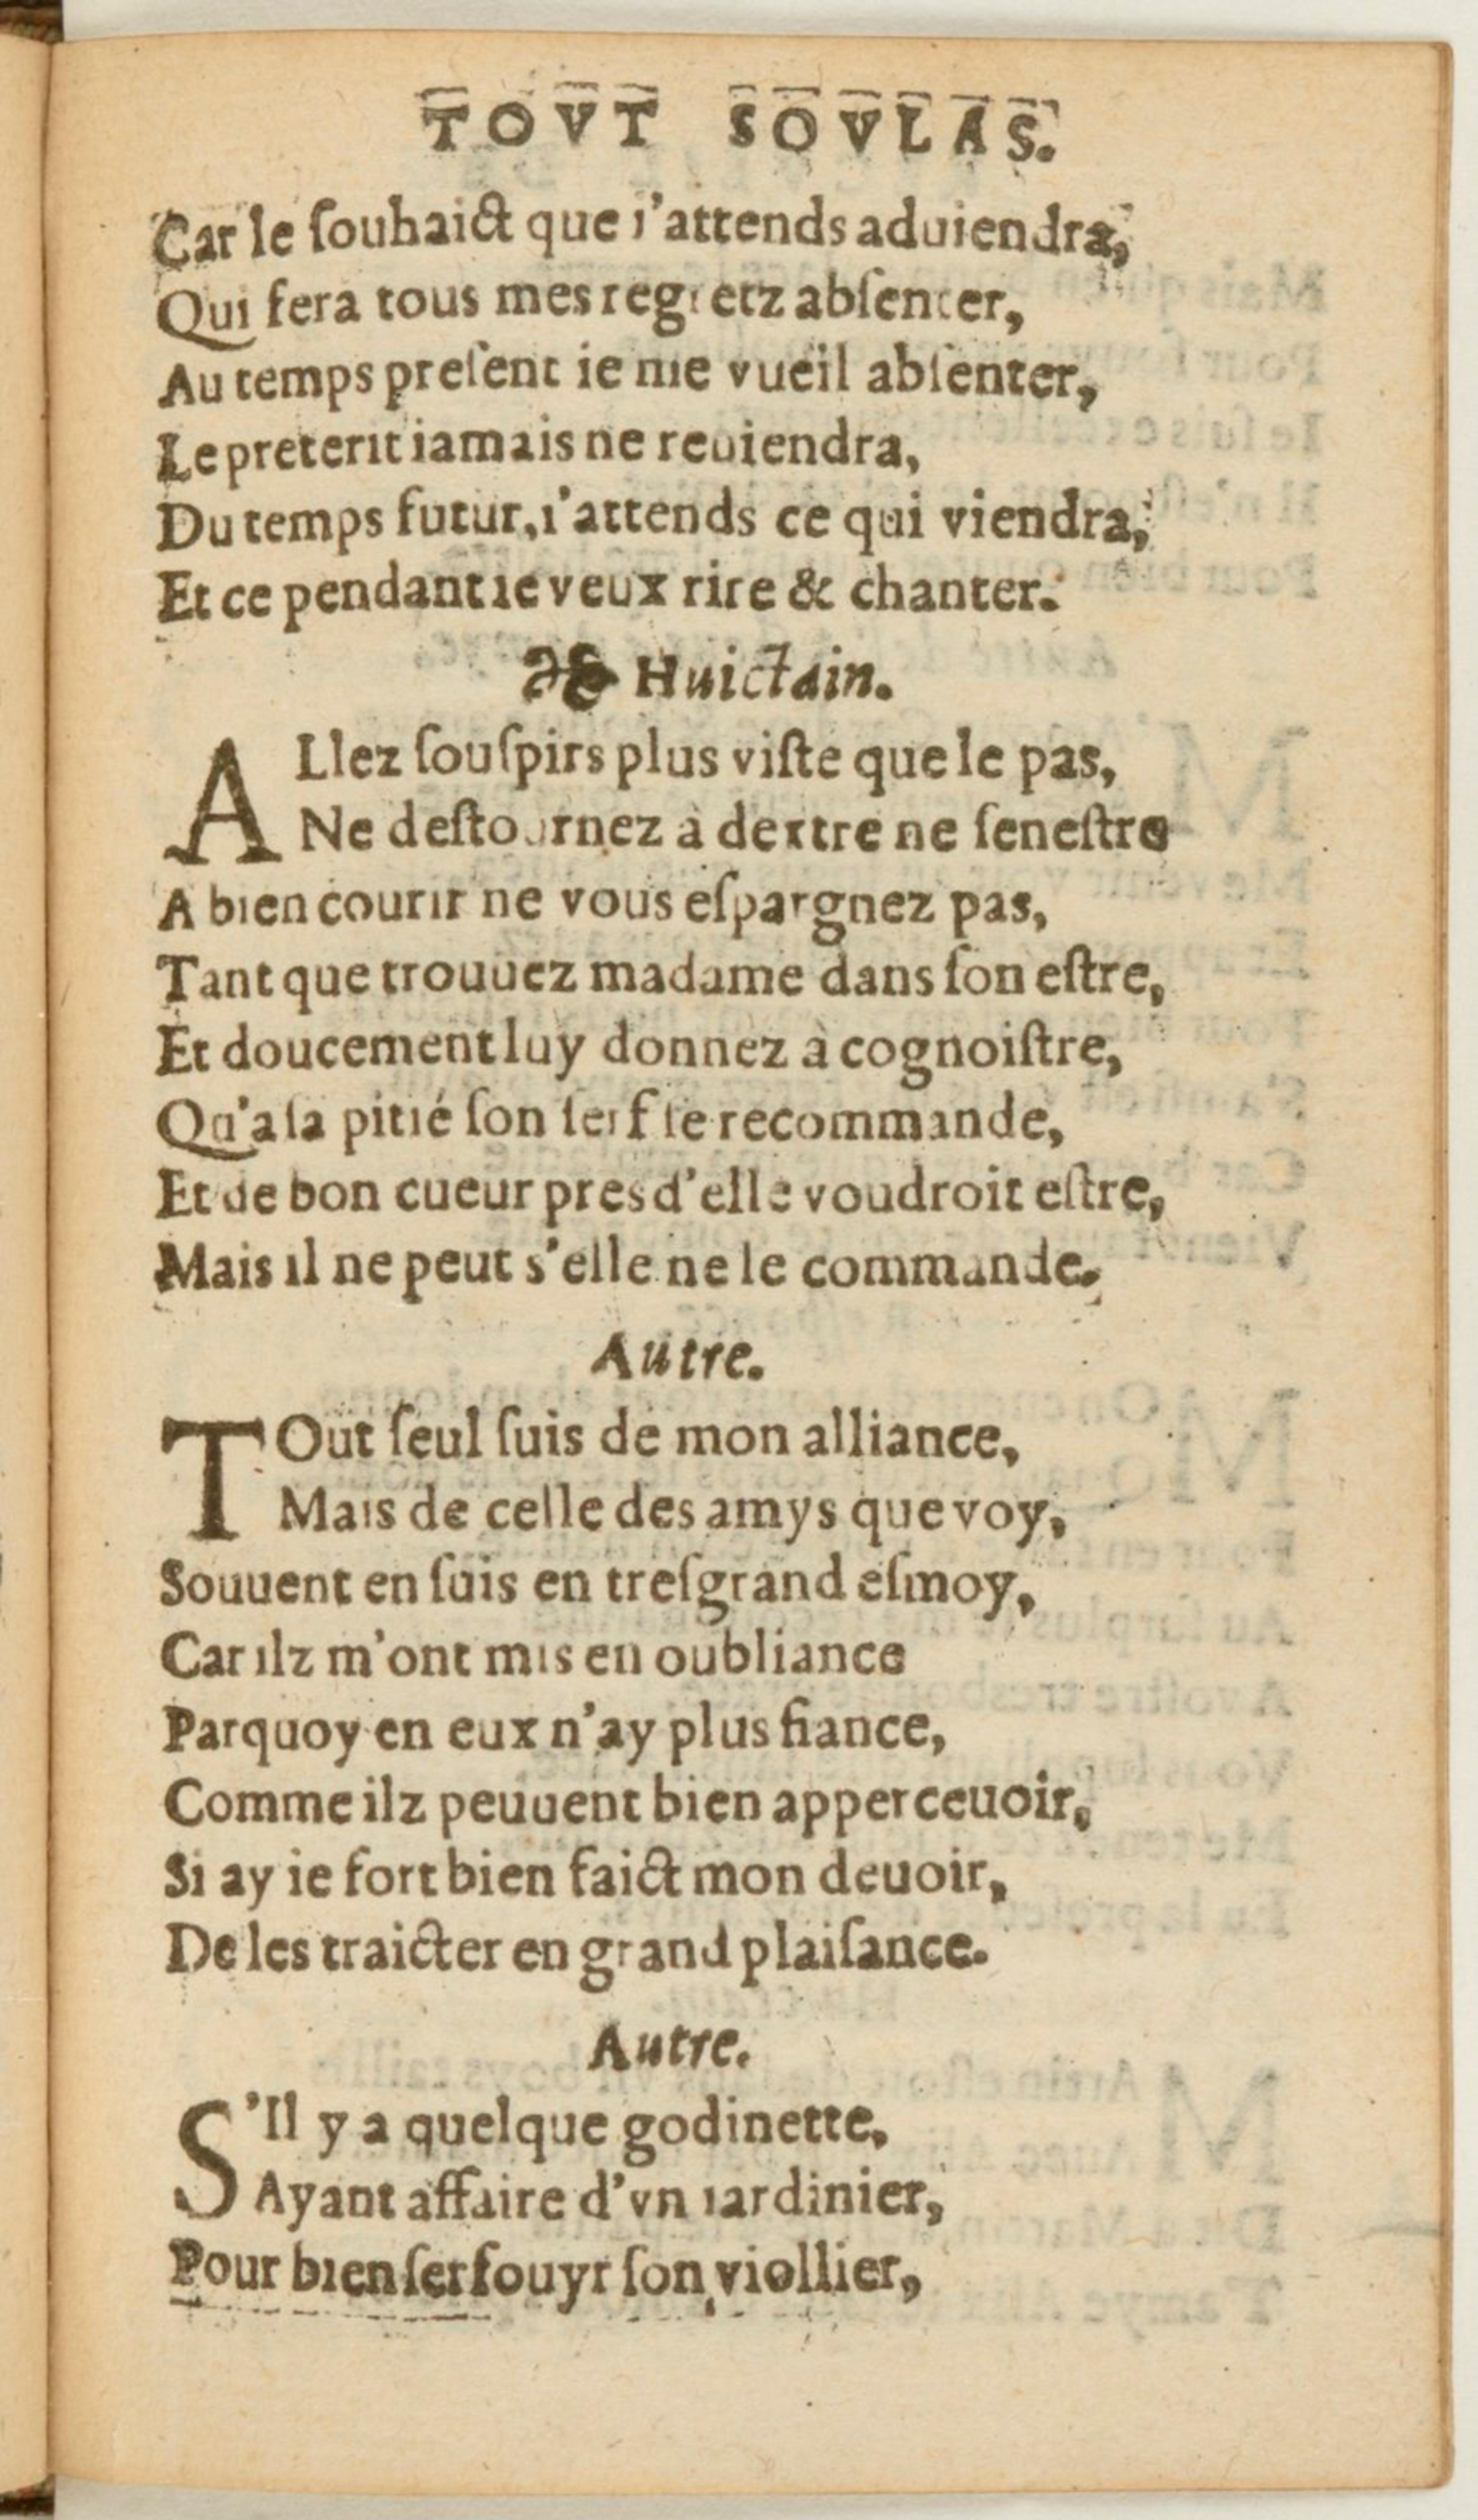 TOVT SOVLAS.
Car le ſouhaict que i'attends aduiendra,
Qui fera tous mes regretz abſenter,
Au temps preſent ie me vueil abſenter,
Le preterit iamais ne reuiendra,
Du temps futur, i'attends ce qui viendra,
Et ce pendant ie veux rire & chanter.
Huictain.
ALlez ſouſpirs plus viſte que le pas,
Ne deſtournez à dextre ne ſeneſtre
A bien courir ne vous eſpargnez pas,
Tant que trouuez madame dans ſon eſtre,
Et doucement luy donnez à cognoiſtre,
Qu'a ſa pitié ſon ſerf ſe recommande,
Et de bon cueur pres d'elle voudroit eſtre,
Mais il ne peut s'elle ne le commande.
Autre.
TOut ſeul ſuis de mon alliance,
Mais de celle des amys que voy,
Souuent en ſuis en treſgrand eſmoy,
Car ilz m'ont mis en oubliance
Parquoy en eux n'ay plus fiance,
Comme ilz peuuent bien apperceuoir,
Si ay ie fort bien faict mon deuoir,
De les traicter en grand plaiſance.
Autre.
S'Il y a quelque godinette,
Ayant affaire d'vn iardinier,
Pour bien ſerfouyr ſon viollier,